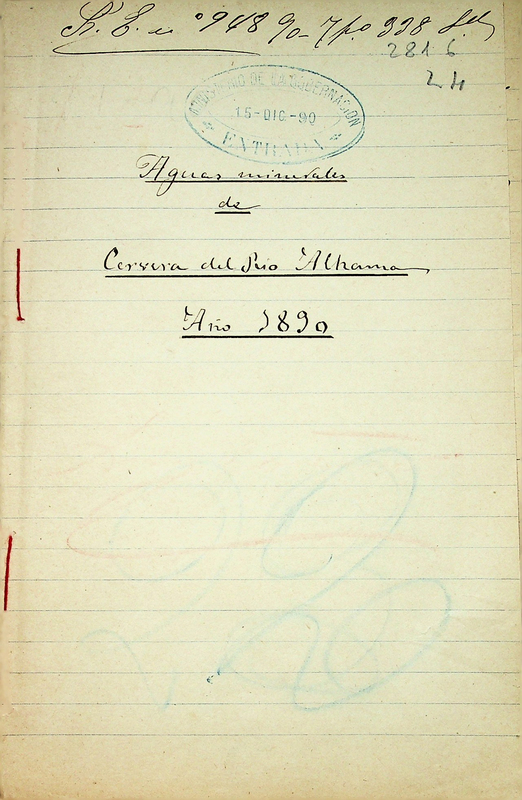 R. E. nº 948 90 - 7 fº 338
2816
24
MINISTERIO DE LA GOBERNACION
15-DIC-90
ENTRADA
Aguas minerales
de
Cervera del Rio Alhama
Año 1890